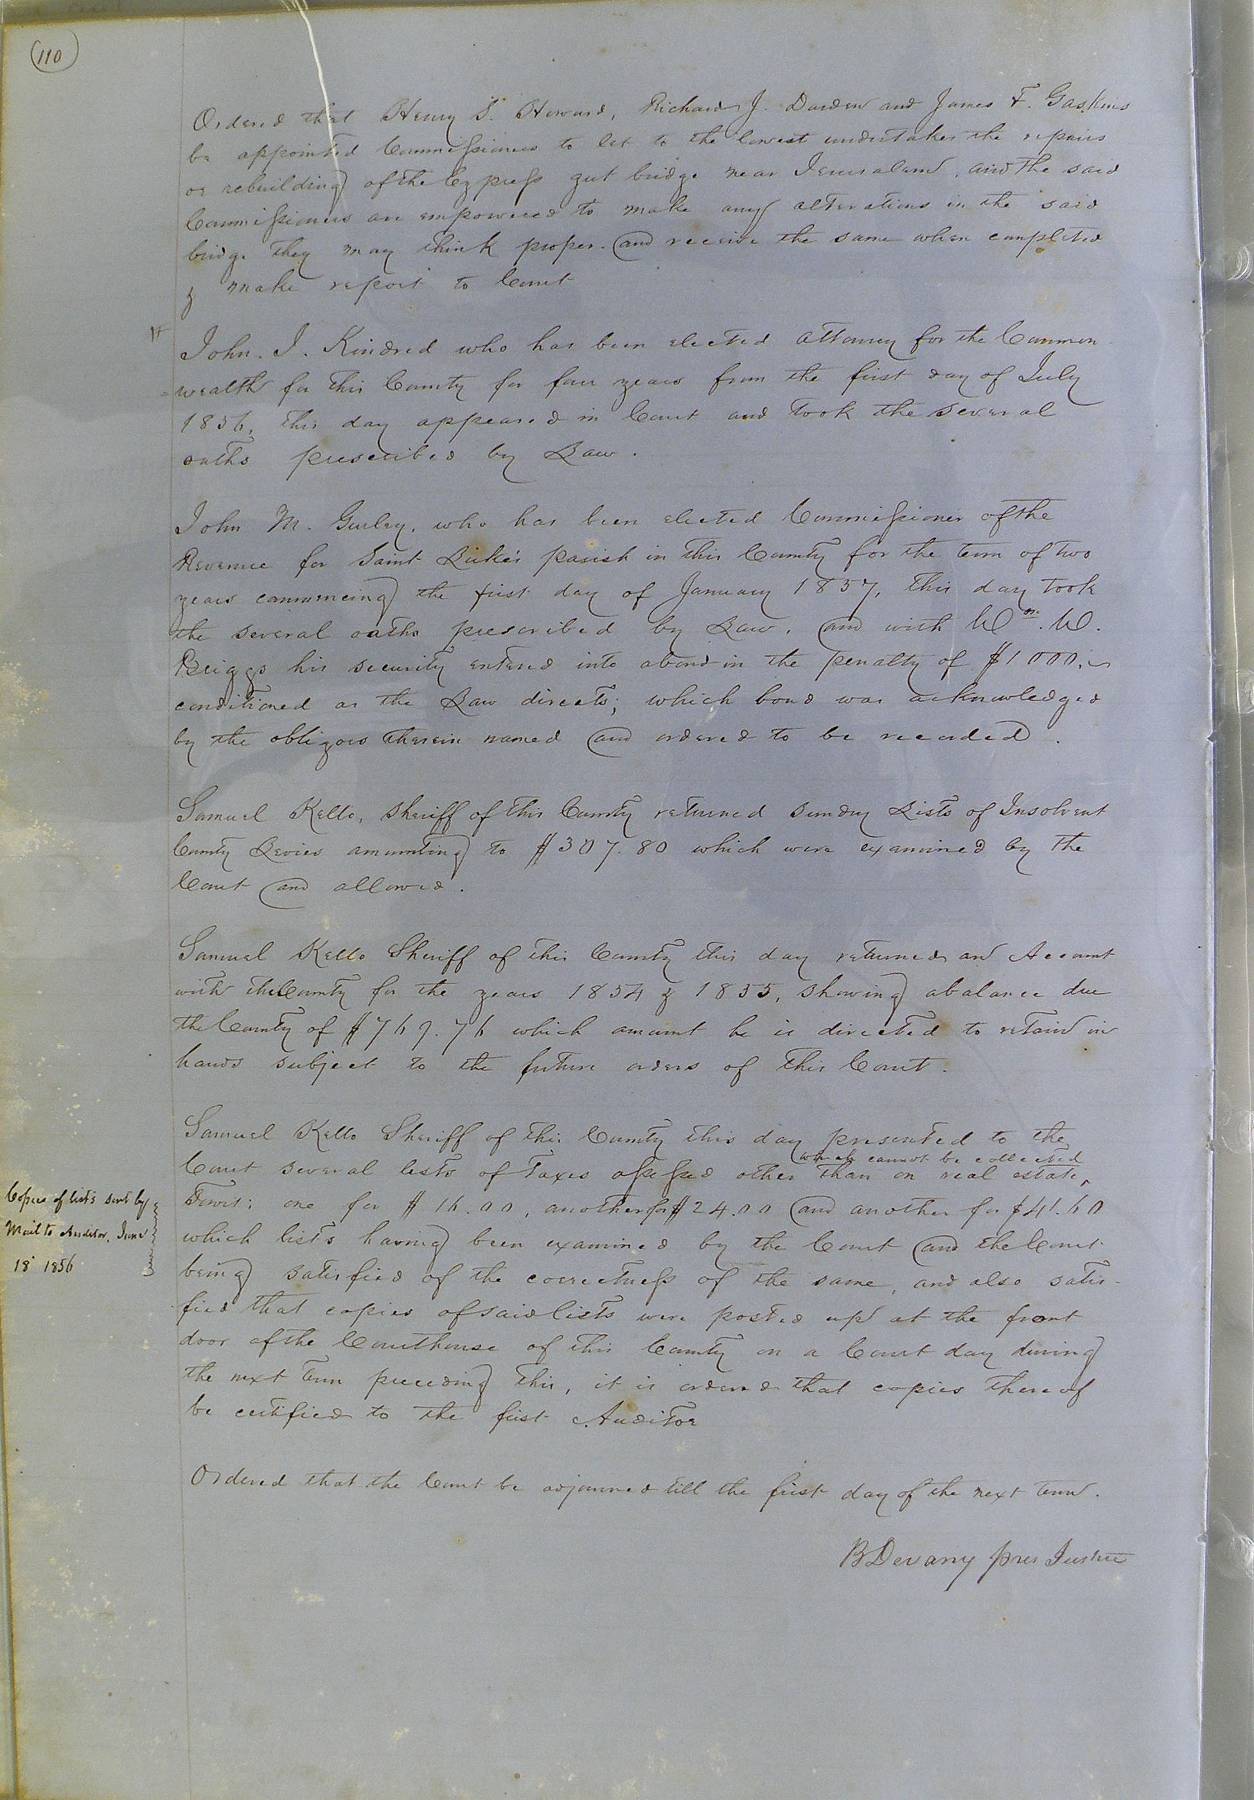 110
Ordered that Henry S. Howard, Richard J. Darden and James F. Gaskins
be appointed Commissioners to let to the lowest undertaker the repairs
or rebuilding of the Cypress gut bridge near Jerusalem, and the said
Commissioners are empowered to make any alterations in the said
bridge they may think proper and receive the same when completed
& make report to Court
John. J. Kindred who has been elected attorney for the Common
wealth for this County for four years from the first day of July
1856, this day appeared in Court and took the several
oaths prescribed by Law.
John M. Gurley, who has been elected Commissioner of the
Revenue for Saint Luke's parish in this County for the term of two
years commencing the first day of January 1857, this day took
the several oaths prescribed by Law, and with Wm. W.
Briggs his security entered into a bond in the penalty of $1000,
conditioned as the Law directs; which bond was acknowledged
by the obligors therein named and ordered to be recorded.
Samuel Kello, sheriff of this County returned sundry Lists of Insolvent
County Levies amounting to $307.80 which were examined by the
Court and allowed.
Samuel Kello Sheriff of this County this day returned an Account
with the County for the years 1854 & 1855, showing a balance due
the County of $769.76 which amount he is directed to retain in
hands subject to the future orders of this Court.
Samuel Kello Sheriff of this County this day presented to the
which cannot be collected
Court several lists of Taxes assessed other than on real estate,
Towit: one for $16.00, another for $24.00 and another for $41.60
which lists having been examined by the Court and the Court
being satisfied of the correctness of the same, and also satis-
fied that copies of said lists were posted up at the front
door of the Courthouse of this County on a Court day during
the next term preceding this, it is ordered that copies thereof
be certified to the first Auditor
Copies of lists sent by
Mail to Auditor, June
18 1856
Ordered that the Court be adjourned till the first day of the next term.
B Devany pres Justice